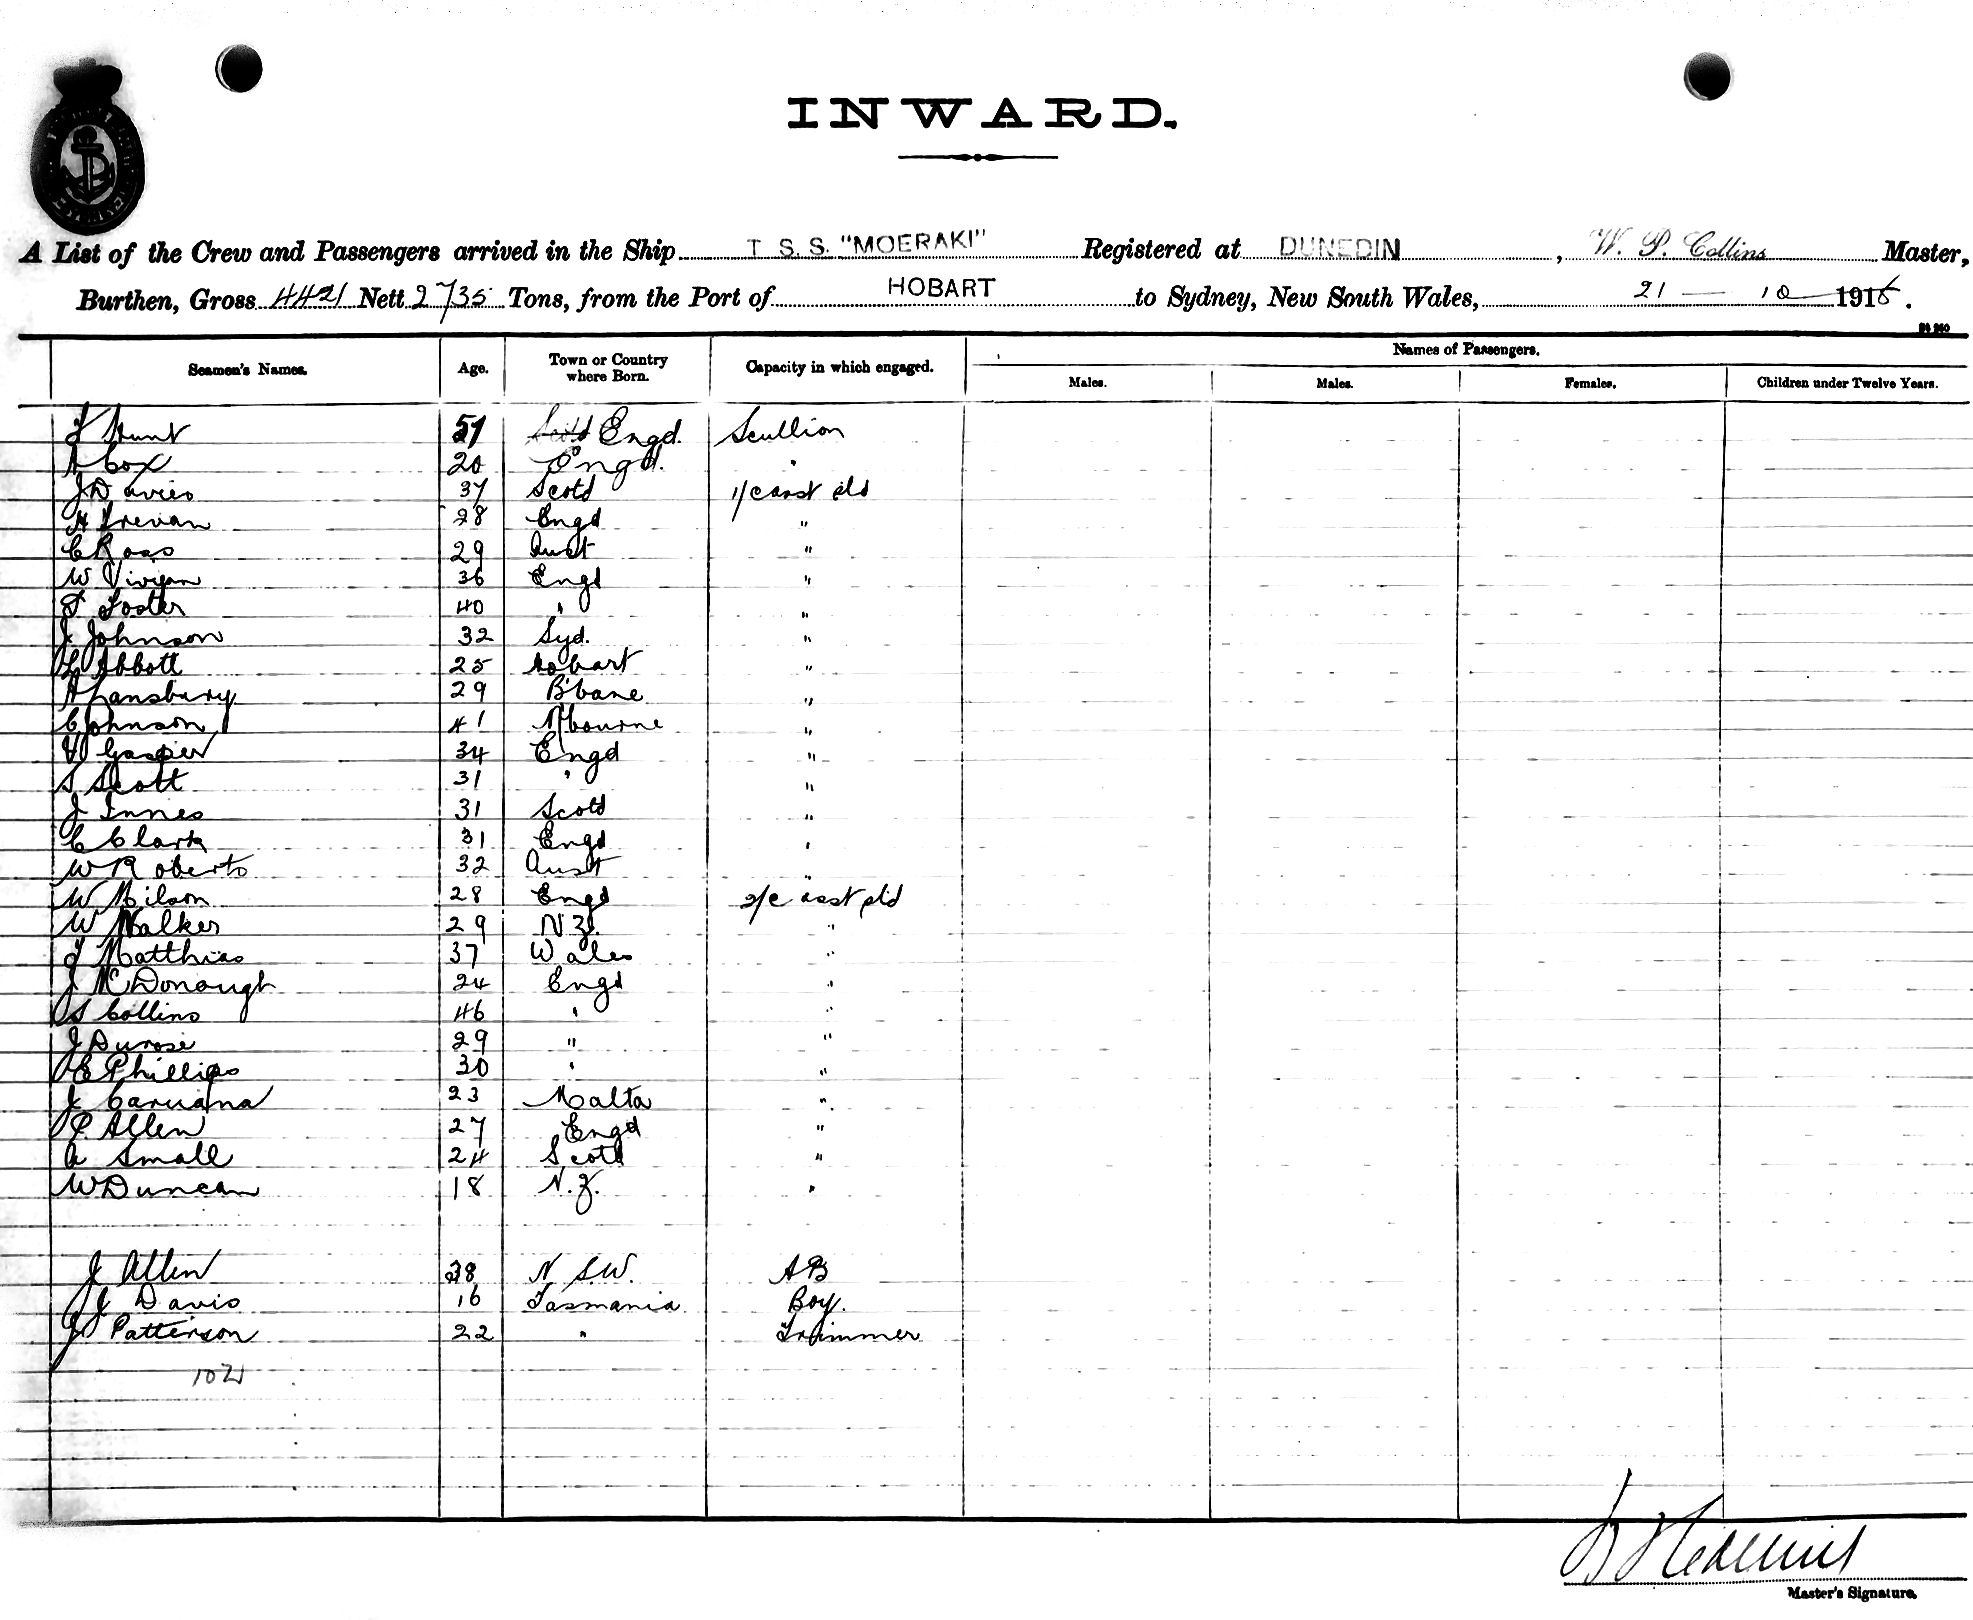 INWARD.
A List of the Crew and Passengers arrived in the Ship T. S. S. "MOERAKI" Registered at DUNEDIN, W. P. Collins Master,
Burthen, Gross 4421 Nett 2735 Tons, from the Port of HOBART to Sydney, New South Wales, 21 — 10 — 1916.
Names of Passengers.
Seamen's Names. Age. Town or Country where Born. Capacity in which engaged. Males. Males. Females. Children under Twelve Years.
F Hunt 51 Scotd Engd. Scullion
A Cox 20 Engd. "
J Davies 37 Scotd 1/c asst std
H Trevan 28 Engd "
C Ross 29 Aust "
W Vivyan 36 Engd "
F Foster 40 " "
J Johnson 32 Syd. "
L Abbott 25 Hobart "
A Lansbury 29 B'bane "
C Johnson 41 Mbourne "
V Gasper 34 Engd "
S Scott 31 " "
J Innes 31 Scotd "
C Clark 31 Engd "
W Roberts 32 Aust "
W Milson 28 Engd 2/c asst std
W Walker 29 N Z. "
J Matthias 37 Wales "
J McDonough 24 Engd "
S Collins 46 " "
J Durose 29 " "
E Phillips 30 " "
J Caruana 23 Malta "
P Allen 27 Engd "
A Small 24 Scotd "
W Duncan 18 N.Z. "
J Allen 38 N S.W. AB
J Davis 16 Tasmania Boy.
J Patterson 22 " Trimmer
102
Master's Signature.